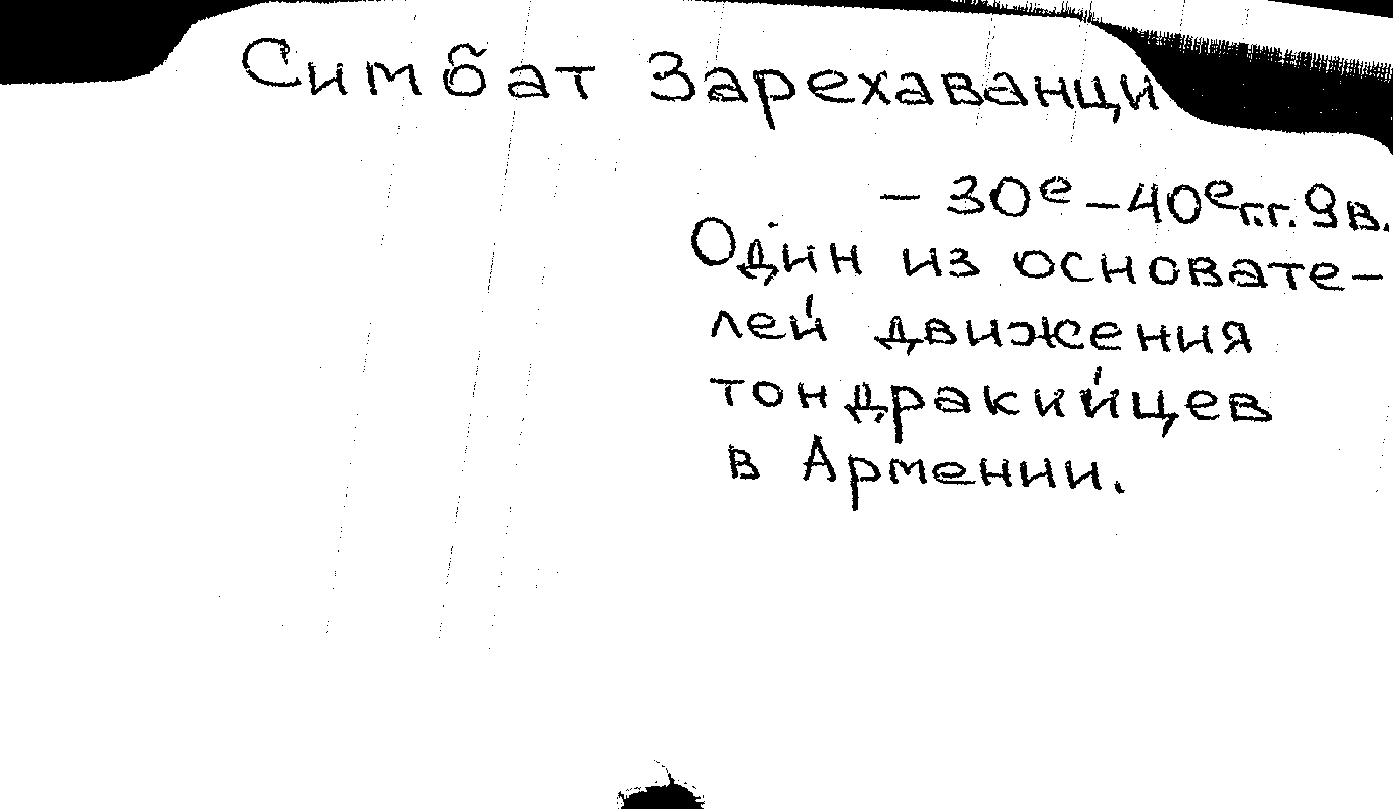 Симбат Зарехаванци
– 30е – 40е г.г. 9 в.
Один из основате-
лей движения
тондракийцев
в Армении.